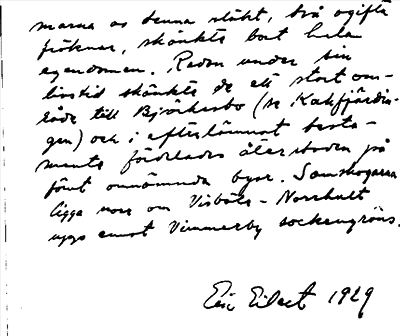 marna av denna släkt, två ogifta
fröknar, skänkte bort hela
egendomen. Redan under sin
livstid skänkte de ett stort om-
råde till Björkesbo (se Kakfjärdin-
gen) och i efterlämnat testa-
mente fördelades återstoden på
förut omnämnda byar. Samskogarna
ligga norr om Visböle - Norrhult
upp emot Vimmerby sockengräns.
Eric Elleet 1929